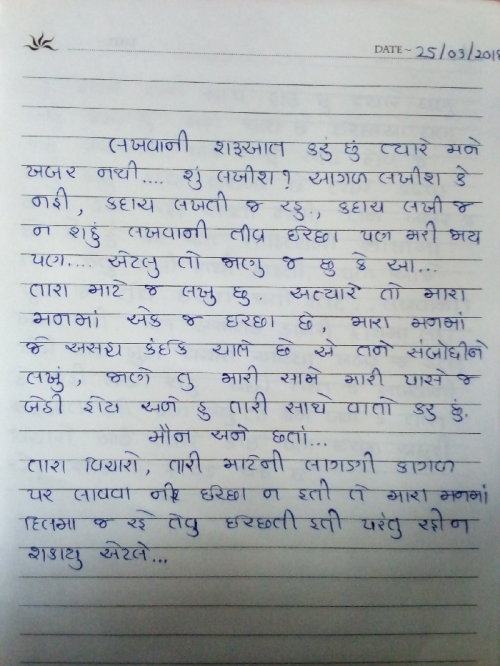 DATE~ 25/03/2018
લખવાની શરૂઆત કરું છું ત્યારે મને
ખબર નથી.... શું લખીશ? આગળ લખીશ કે
નહી, કદાચ લખતી જ રહુ., કદાચ લખી જ
ન શકું લખવાની તીવ્ર ઈચ્છા પણ મરી જાય
પણ.... એટલુ તો જાણુ જ છુ કે આ...
તારા માટે જ લખુ છુ. અત્યારે તો મારા
મનમાં એક જ ઇચ્છા છે, મારા મનમાં
જે અસહ્ય કંઈક ચાલે છે એ તને સંબોધીને
લખું, જાણે તુ મારી સામે મારી પાસે જ
બેઠી હોય અને હુ તારી સાથે વાતો કરુ છું.
મૌન અને છતાં...
તારા વિચારો, તારી માટેની લાગણી કાગળ
પર લાવવા ની ઇચ્છા ન હતી તે મારા મનમાં
દિલમા જ રહે તેવુ ઈચ્છતી હતી પરંતુ રહી ન
શકાયુ એટલે...